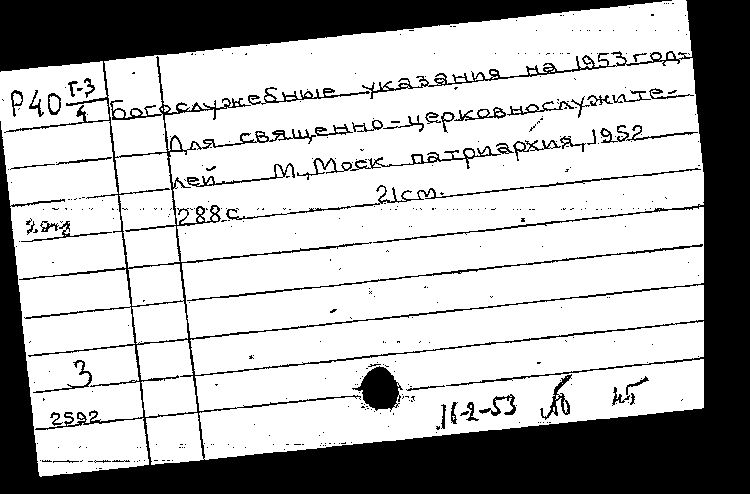 Р40 Г-3/4 Богослужебные указания на 1953 год.
Для священно-церковнослужите-
лей. М., Моск. патриархия, 1952
288с. 21см.
2 экз
3
2592
16-2-53